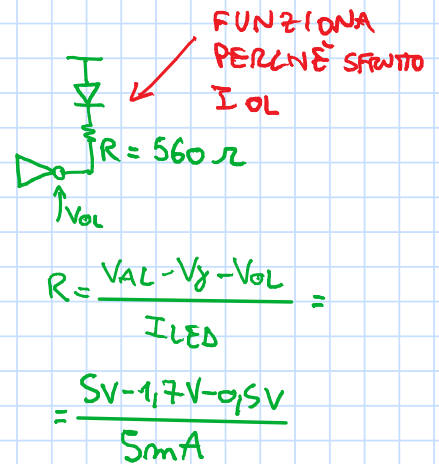 FUNZIONA
PERCHÈ SFRUTTO
IOL
R = 560 Ω
VOL
R = VAL - Vγ - VOL / ILED =
= 5V-1,7V-0,5V / 5mA